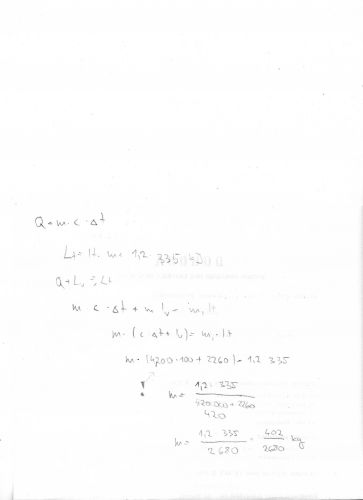 Q = m · c · Δt
Lt = lt · m = 1,2 · 335 kJ
Q + Lv = Lt
m c · Δt + m lv = m, lt
m · (c · Δt + lv) = m, · lt
m · (4200 · 100 + 2260) = 1,2 · 335
! m = 1,2 · 335 / 420 000 + 2260
420
m = 1,2 · 335 / 2680 = 402 / 2680 kg